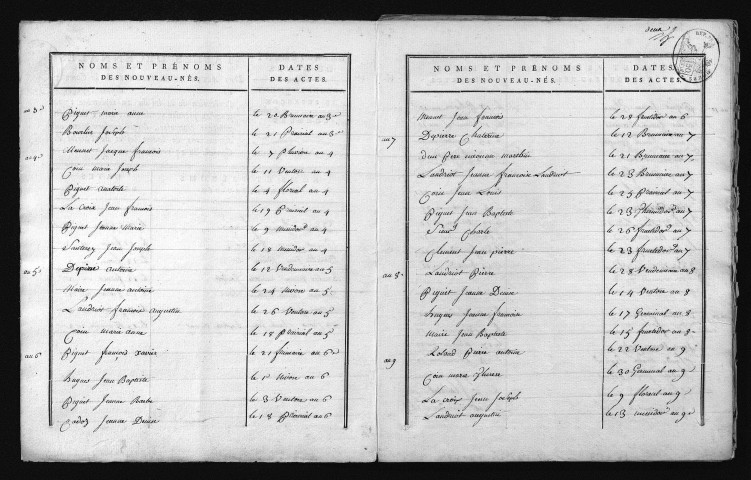 NOMS ET PRÉNOMS DES NOUVEAU-NÉS.
DATES DES ACTES.
an 3e
Piguet marie anne le 20 Brumaire an 3e
Bourlier Joseph le 21 Prairial an 3e
an 4e
Meunet Jacque francois le 7 Pluviose an 4
Coin Marie Joseph le 11 Ventose an 4
Piguet le 4 floreal an 4
La croix Jean francois le 19 Prairial an 4
Piguet Jeanne Marie le 9 messidor an 4
Jean Joseph le 18 messidor an 4
an 5e
Depierre antoine le 12 Vendemiaire an 5
Maire Jeanne antoine le 24 nivose an 5
Landriot francois augustin le 26 Ventose an 5
Coin marie anne le 18 Prairial an 5
an 6e
Piguet francois xavier le 21 frimaire an 6e
hugues Jean Baptiste le 1er nivose an 6
Piguet Jeanne Barbe le 3 Ventose an 6
Cadoz Jeanne Denise le 18 an 6
deux
NOMS ET PRÉNOMS DES NOUVEAU-NÉS.
DATES DES ACTES.
Meunet Jean francois le 29 fructidor an 6
an 7
Depierre Catherine le 12 Brumaire an 7
le 21 Brumaire an 7
Landriot Jeanne francoise le 23 Brumaire an 7
Jean Louis le 25 Prairial an 7
Piguet Jean Baptiste le 23 Thermidor an 7
Charle le 26 fructidor an 7
Clement Jean pierre le 23 fructidor an 7
an 8e
Landriot Pierre le 28 Vendemiaire an 8
Piguet Jeanne Denise le 14 Ventose an 8
hugues Jeanne francoise le 17 Germinal an 8
Maire Jean Baptiste le 15 fructidor an 8
an 9
Roland Pierre antoine le 22 Ventose an 9
Coin marie le 30 Germinal an 9
La croix Jean Joseph le 9 floreal an 9
Landriot augustin le 13 messidor an 9e